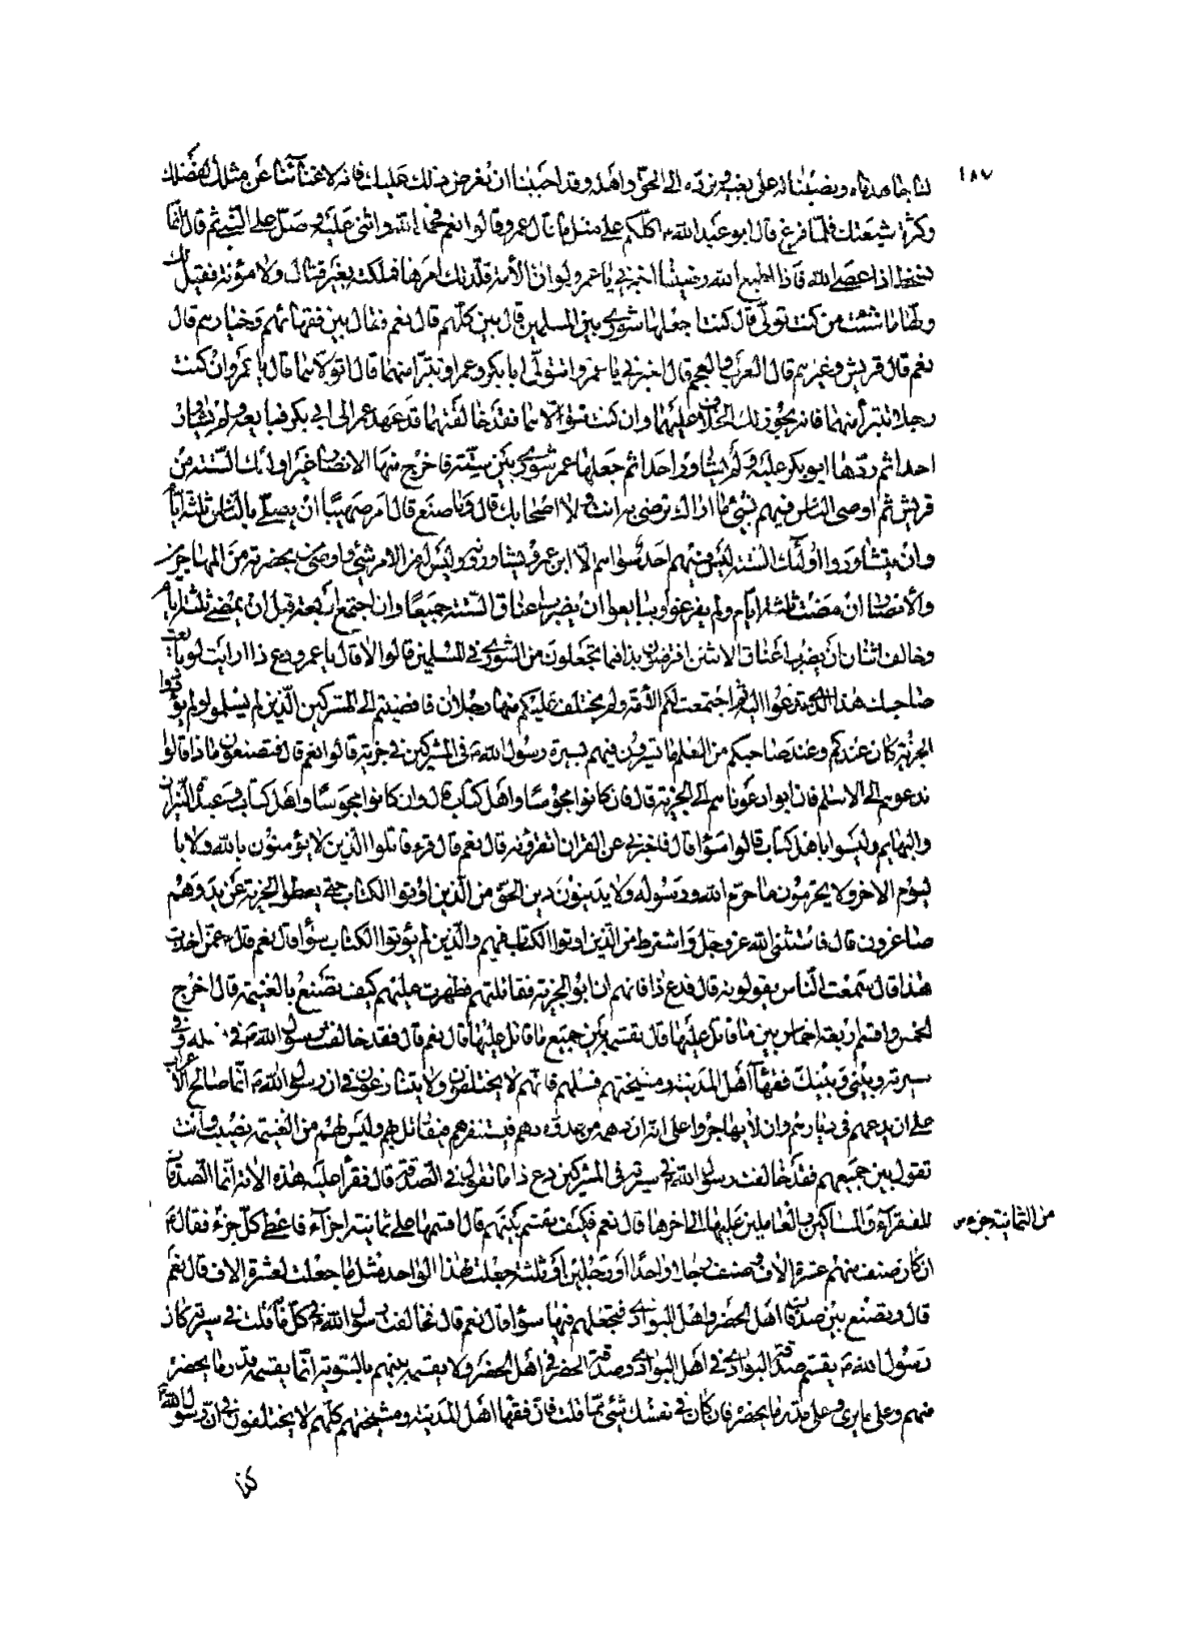 ١٨٧
لنا جاهدناه ونصبنا له على بغيه ونرده الى الحق واهله وقد احببنا ان نعرض ذلك عليك فانه لا غنا بنا عن مثلك لفضلك
وكثرة شيعتك فلما فرغ قال ابو عبد الله ع اكلكم على مثل ما قال عمرو قالوا نعم فحمد الله واثنى عليه وصلى على النبي ثم قال انما
نسخط اذا عصي الله فاذا اطيع الله رضينا اخبرني يا عمرو لو ان الامة قلدتك امرها فملكته بغير قتال ولا مؤنة فقيل لك
ولها من شئت من كنت تولي قال كنت اجعلها شورى بين المسلمين قال بين كلهم قال نعم فقال بين فقهائهم وخيارهم قال
نعم قال قريش وغيرهم قال العرب والعجم قال اخبرني يا عمرو اتتولى ابا بكر وعمر او تتبرأ منهما قال اتولاهما قال يا عمرو ان كنت
رجلا تتبرأ منهما فانه يجوز لك الخلاف عليهما وان كنت تتولاهما فقد خالفتهما قد عهد عمر الى ابي بكر فبايعه ولم يشاور
احدا ثم ردها ابو بكر عليه ولم يشاور احدا ثم جعلها عمر شورى بين ستة فاخرج منها الانصار غير اولئك الستة من
قريش ثم اوصى الناس فيهم بشيء ما اراك ترضى به انت ولا اصحابك قال وما صنع قال امر صهيبا ان يصلي بالناس ثلثة ايام
وان يتشاوروا اولئك الستة ليس فيهم احد سواهم الا ابن عمر يشاورونه وليس له من الامر شيء واوصى بحضرته من المهاجرين
والانصار ان مضت ثلثة ايام ولم يفرغوا ويبايعوا ان يضرب اعناق الستة جميعا وان اجتمع اربعة قبل ان يمضي ثلثة ايام
وخالف اثنان ان يضرب اعناق الاثنين افترضون بذا فيما تجعلون من الشورى في المسلمين قالوا لا قال يا عمرو دع ذا ارايت لو بايعت
صاحبك هذا الذي تدعوا اليه ثم اجتمعت لكم الامة ولم يختلف عليكم منها رجلان فافضيتم الى المشركين الذين لم يسلموا ولم يؤدوا
الجزية كان عندكم وعند صاحبكم من العلم ما تسيرون فيهم بسيرة رسول الله ص في المشركين في جزية قالوا نعم قال فتصنعون ماذا قالوا
ندعوهم الى الاسلام فان ابوا دعوناهم الى الجزية قال فان كانوا مجوسا واهل كتاب قال وان كانوا مجوسا واهل كتاب وعبدة النيران
والبهائم وليسوا باهل كتاب قالوا سواء قال فاخبرني عن القران اتقرؤنه قال نعم قال اقرء قاتلوا الذين لا يؤمنون بالله ولا با
ليوم الاخر ولا يحرمون ما حرم الله ورسوله ولا يدينون دين الحق من الذين اوتوا الكتاب حتى يعطوا الجزية عن يد وهم
صاغرون قال فاستثنى الله عز وجل واشترط من الذين اوتوا الكتاب فهم والذين لم يؤتوا الكتاب سواء قال نعم قال ع عمن اخذت
هذا قال سمعت الناس يقولونه قال فدع ذا فانهم ان ابوا الجزية فقاتلتهم فظهرت عليهم كيف تصنع بالغنيمة قال اخرج
الخمس واقسم اربعة اخماس بين من قاتل عليها قال تقسمه بين جميع من قاتل عليها قال نعم قال فقد خالفت رسول الله ص في فعله وفي
سيرته وبيني وبينك فقهاء اهل المدينة ومشيختهم فسلهم فانهم لا يختلفون ولا يتنازعون في ان رسول الله ص انما صالح الاعراب
على ان يدعهم في ديارهم وان لا يهاجروا على انه ان دهمه من عدوه دهم فيستنفرهم فيقاتل بهم وليس لهم من الغنيمة نصيب وانت
تقول بين جميعهم فقد خالفت رسول الله ص في سيرته في المشركين دع ذا ما تقول في الصدقة قال فقرأ عليه هذه الاية انما الصدقات
للفقراء والمساكين والعاملين عليها الى اخرها قال نعم فكيف تقسم بينهم قال اقسمها على ثمانية اجزاء فاعطي كل جزء فقال ع
من الثمانية جزء
ان كان صنف منهم عشرة الاف وصنف رجلا واحدا او رجلين او ثلثة جعلت لهذا الواحد مثل ما جعلت لعشرة الاف قال نعم
قال وتصنع بين صدقات اهل الحضر واهل البوادي فتجعلهم فيها سواء قال نعم قال فخالفت رسول الله ص في كل ما قلت في سيرته كان
رسول الله ص يقسم صدقة البوادي في اهل البوادي وصدقة الحضر في اهل الحضر ولا يقسمه بينهم بالسوية انما يقسمه قدر ما يحضره
منهم وعلى ما يرى وعلى قدر ما يحضره فان كان في نفسك شيء مما قلت فان فقهاء اهل المدينة ومشيختهم كلهم لا يختلفون في ان رسول الله ص
كذا